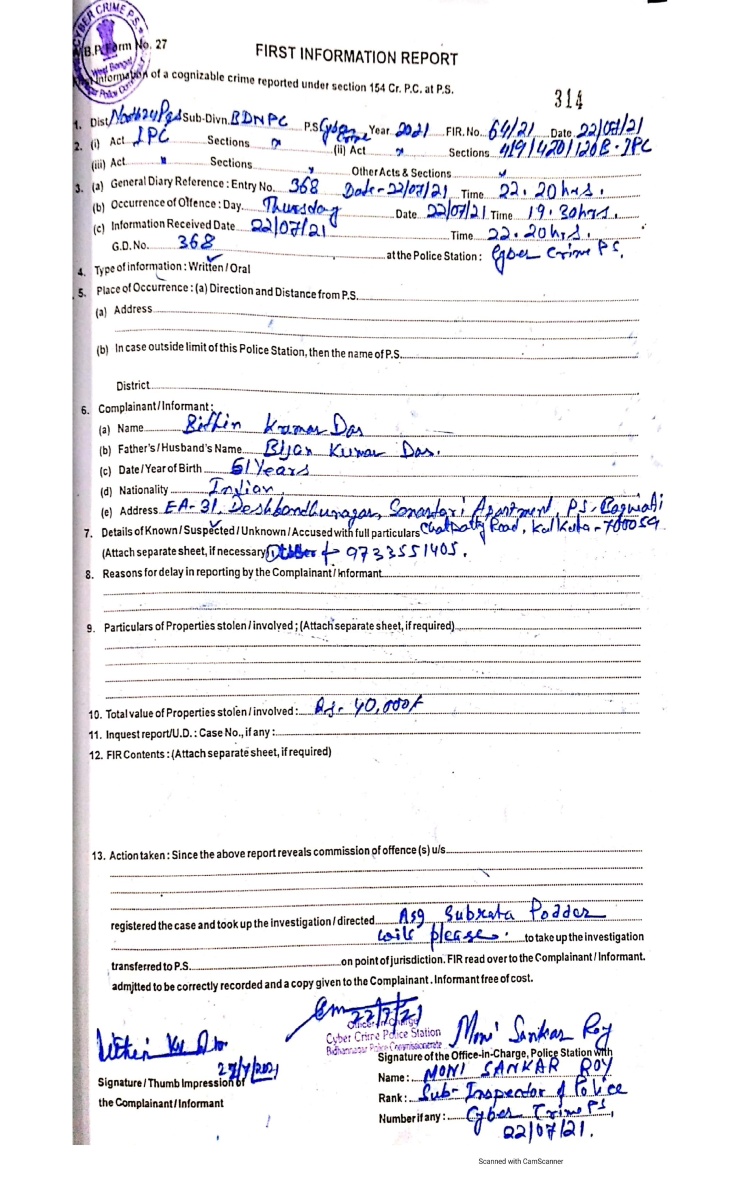 CYBER CRIME P.S.
West Bengal
W.B.P. Form No. 27
FIRST INFORMATION REPORT
First Information of a cognizable crime reported under section 154 Cr. P.C. at P.S.
314
1. Dist North 24 Pgs Sub-Divn. BDNPC P.S. Cyber Crime Year 2021 FIR. No. 64/21 Date 22/07/21
2. (i) Act IPC Sections (ii) Act Sections 419/420/120B. IPC
(iii) Act Sections Other Acts & Sections
3. (a) General Diary Reference : Entry No. 368 Date - 22/07/21 Time 22.20 hrs.
(b) Occurrence of Offence : Day. Thursday Date 22/07/21 Time 19.30 hrs.
(c) Information Received Date 22/07/21 Time 22.20 hrs.
G.D. No. 368 at the Police Station : Cyber Crime PS.
4. Type of information : Written / Oral
5. Place of Occurrence : (a) Direction and Distance from P.S.
(a) Address
(b) In case outside limit of this Police Station, then the name of P.S.
District
6. Complainant / Informant :
(a) Name Kumar Das
(b) Father's / Husband's Name Bijan Kumar Das.
(c) Date / Year of Birth 61 Years
(d) Nationality Indian
(e) Address EA-31, Deshbandhunagar, Sonartari Apartment, PS- Baguiati
7. Details of Known / Suspected / Unknown / Accused with full particulars Road, Kolkata - 700059
(Attach separate sheet, if necessary) 9733551405.
8. Reasons for delay in reporting by the Complainant / Informant
9. Particulars of Properties stolen / involved ; (Attach separate sheet, if required)
10. Total value of Properties stolen / involved : Rs- 40,000/-
11. Inquest report/U.D. : Case No., if any :
12. FIR Contents : (Attach separate sheet, if required)
13. Action taken : Since the above report reveals commission of offence (s) u/s
registered the case and took up the investigation / directed Subrata Podder
will please. to take up the investigation
transferred to P.S. on point of jurisdiction. FIR read over to the Complainant / Informant.
admitted to be correctly recorded and a copy given to the Complainant . Informant free of cost.
22/7/21
Officer-in-Charge
Cyber Crime Police Station
Bidhannagar Police Commissionerate
Moni Sankar Roy
Signature of the Office-in-Charge, Police Station with
Name : MONI SANKAR ROY
Rank : Sub-Inspector of Police
Number if any : Cyber Crime PS,
22/07/21.
Signature / Thumb Impression of
the Complainant / Informant
Scanned with CamScanner